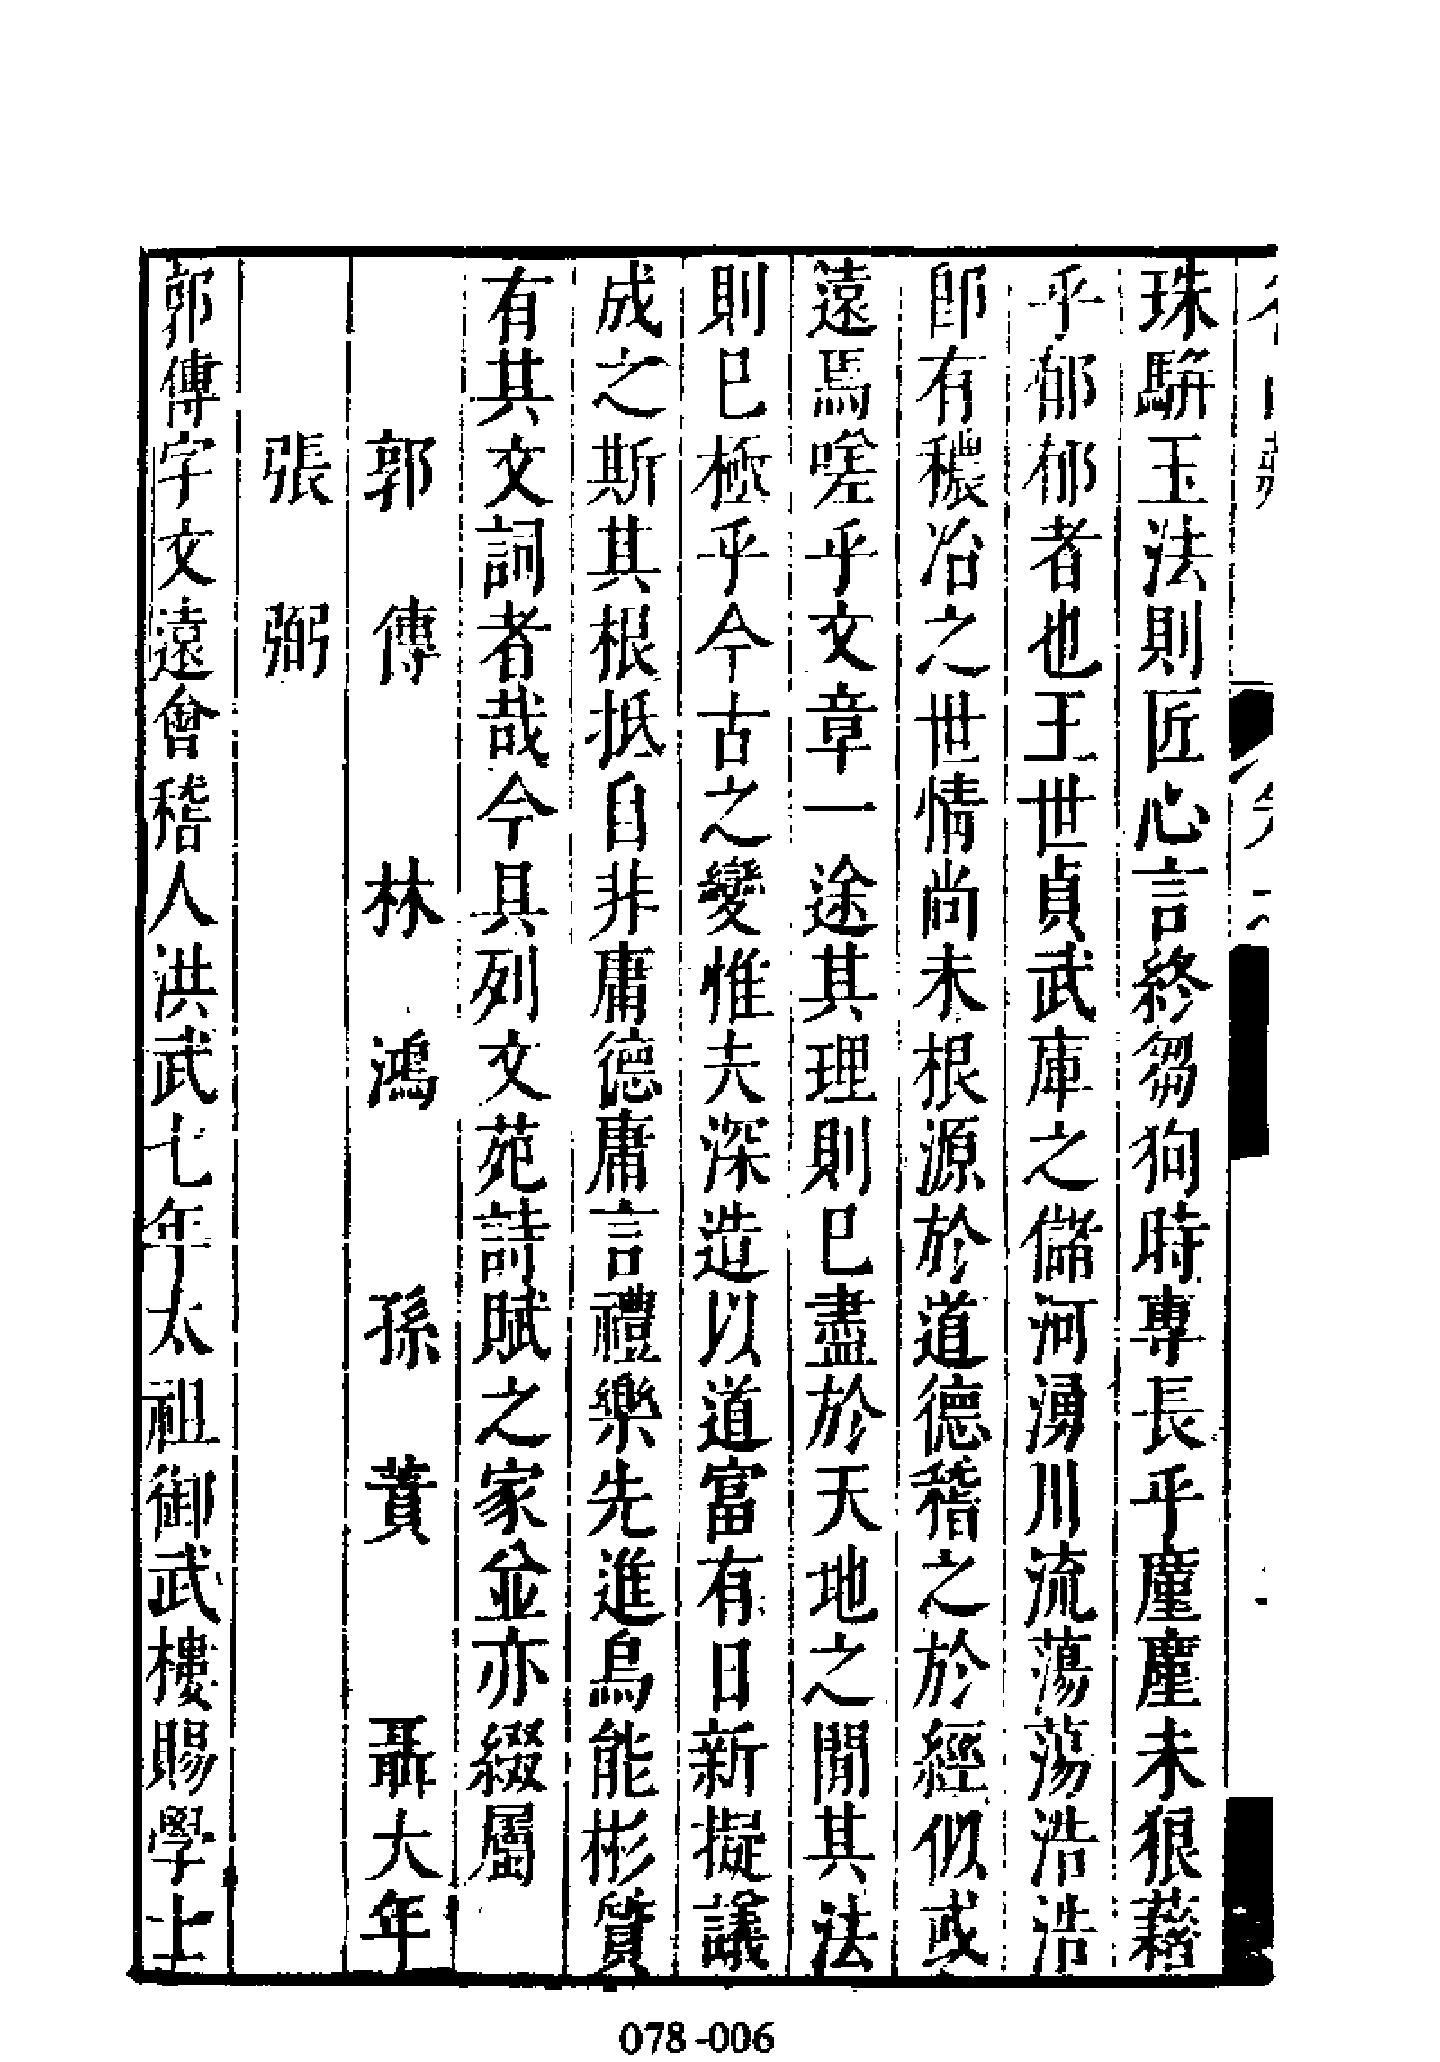 珠駢玉法則匠心言終芻狗時專長乎廑廑未狠藉
乎郁郁者也王世貞武庫之儲河湧川流蕩蕩浩浩
卽有穠冶之世情尚未根源於道德稽之於經似或
遠焉嗟乎文章一途其理則已盡於天地之間其法
則已極乎今古之變惟夫深造以道富有日新擬議
成之斯其根抵自非庸德庸言禮樂先進烏能彬質
有其文詞者哉今具列文苑詩賦之家並亦綴屬
郭傳 林鴻 孫蕡 聶大年
張弼
郭傳字文遠會稽人洪武七年太祖御武樓賜學士
078-006